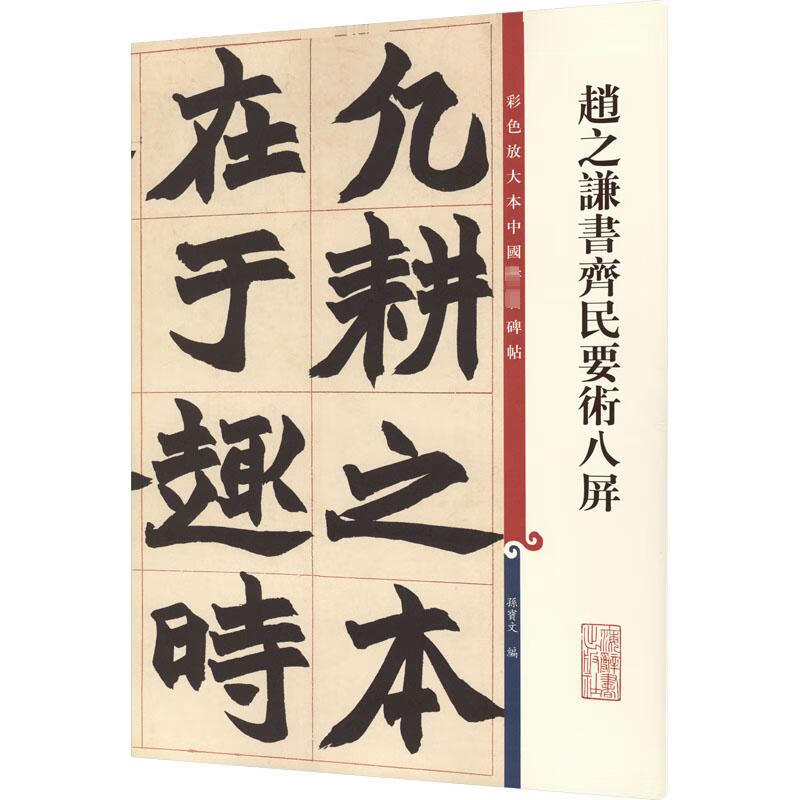 趙之謙書齊民要術八屏
彩色放大本中國碑帖
孫寶文 編
凡耕之本
在于趣時